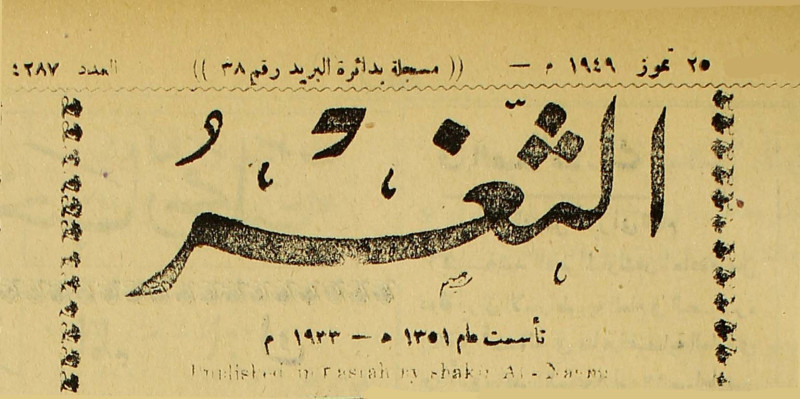 ٢٥ تموز ١٩٤٩ م — (( مسجلة بدائرة البريد رقم ٣٨ )) العدد ٤٢٨٧
الثغر
تأسست عام ١٣٥١ ه — ١٩٣٣ م
Published in Basrah by Shakir Al-